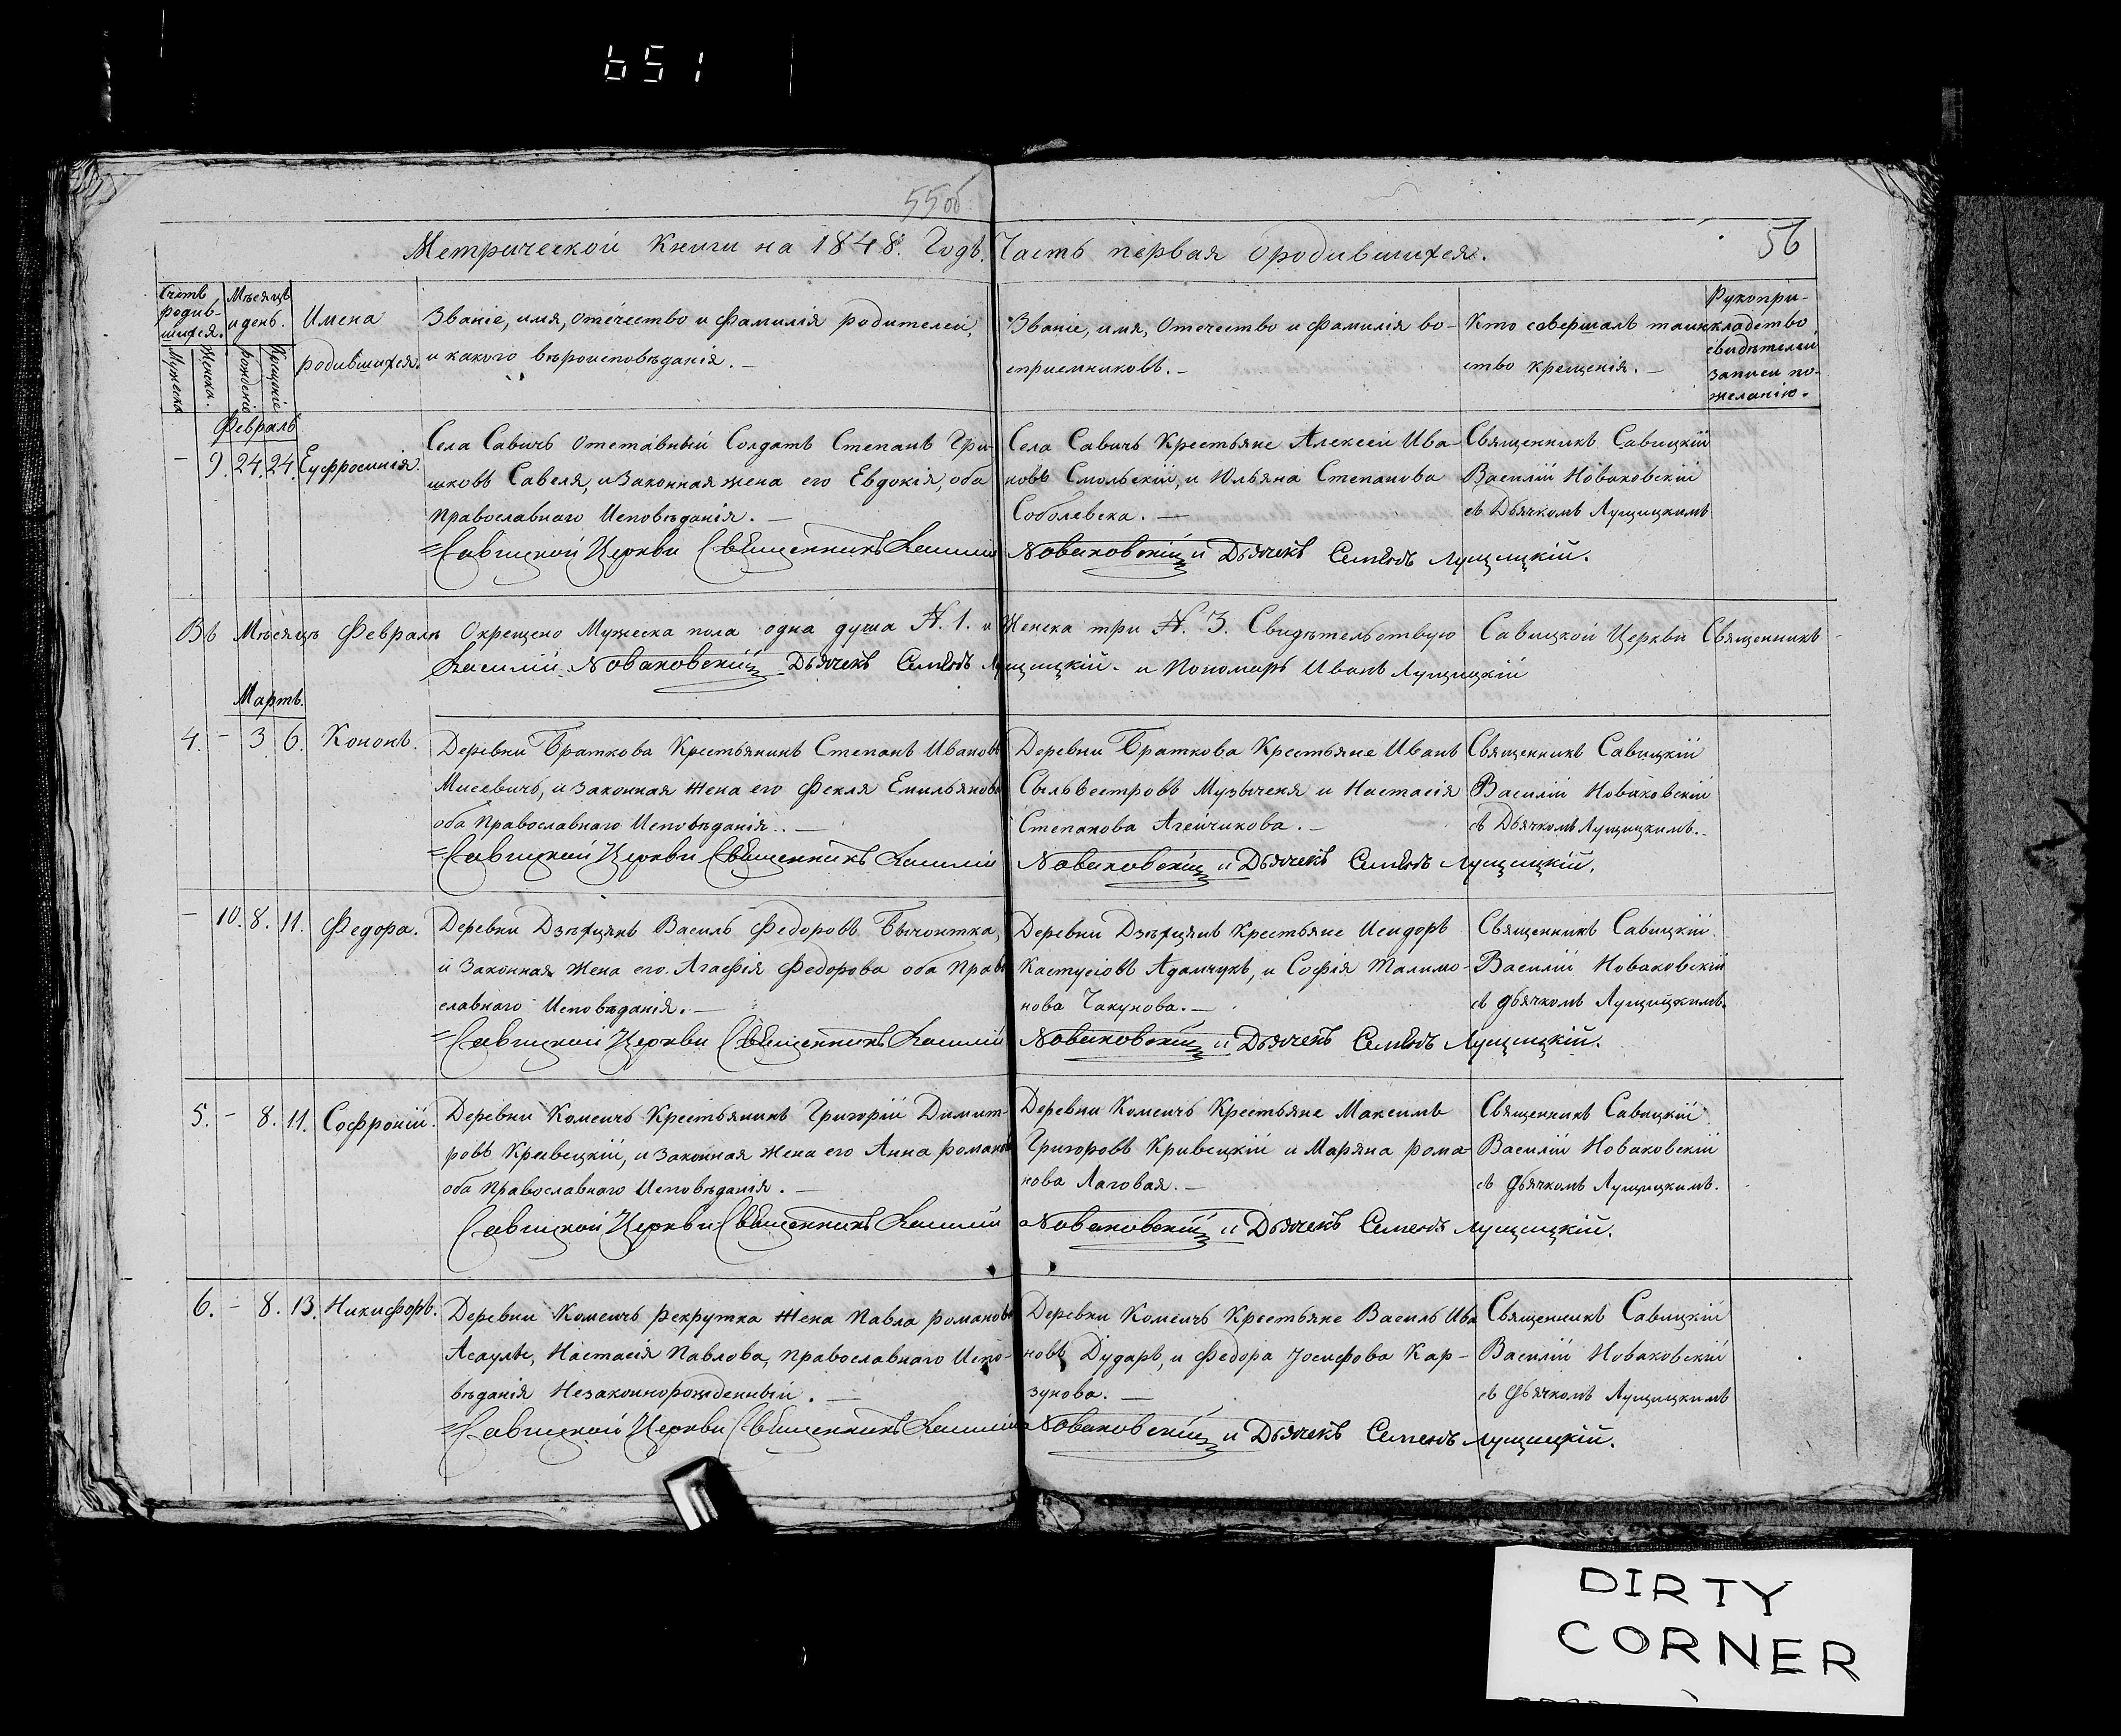 651
55об
56
Метрической Книги на 1848. Годъ, Часть первая о родившихся.
Счетъ родив-шихся.
Мужеска
Женска.
Мѣсяцъ и день.
рожденія
Крещенія
Имена родившихся.
Званіе, имя, отечество и фамилія родителей,
и какого вѣроисповѣданія.
Званіе, имя, Отечество и фамилія во-
сприемниковъ.
Кто совершалъ таин-
ство крещенія.
Рукопри-
кладство
свидѣтелей
записи по-
желанію.
Февраль
- 9. 24. 24. Еуфросинія.
Села Савичъ отставный Солдатъ Степанъ Гри-
шковъ Савеля, и Законная жена его Евдокія, оба
Православнаго Исповѣданія.
Села Савичъ Крестьяне Алексей Ива-
новъ Смольскій, и Юльяна Степанова
Соболевска.
Священникъ Савицкій
Василій Новаковскій
съ Дьячкомъ Лущицкимъ
Савицкой Церкви Священникъ Василий Новаковскій и Дьячекъ Семенъ Лущицкій.
Въ Мѣсяцѣ Февралѣ Окрещено Мужеска пола одна душа N. 1. и Женска три N. 3. Свидѣтельствую Савицкой Церкви Священникъ
Василій Новаковскій Дьячекъ Семенъ Лущицкій. и Пономарь Иванъ Лущицкій
Мартъ.
4. - 3. 6. Кононъ.
Деревни Браткова Крестьянинъ Степанъ Ивановъ
Мисевичъ, и законная Жена его Фекля Емильянова
оба Православнаго Исповѣданія.
Деревни Браткова Крестьяне Иванъ
Сыльвестровъ Музыченя и Настасія
Степанова Агейчикова.
Священникъ Савицкій
Василій Новаковскій
съ Дьячкомъ Лущицкимъ.
Савицкой Церкви Священникъ Василій Новаковскій и Дьячекъ Семенъ Лущицкій.
- 10. 8. 11. Федора.
Деревни Дзѣхцянъ Василь Федоровъ Бычонтка,
и Законная Жена его Агафія Федорова оба Право
славнаго Исповѣданія.
Деревни Дзѣхцянъ Крестьяне Исидоръ
Кастусіовъ Адамчукъ, и СофіяТалимо-
нова Чакунова.
Священникъ Савицкій
Василій Новаковскій
съ дьячкомъ Лущицкимъ.
Савицкой Церкви Священникъ Василій Новаковскій и Дьячекъ Семенъ Лущицкій.
5. - 8. 11. Софроній.
Деревни Комсичъ Крестьянинъ Григорій Димит-
ровъ Кривецкій, и законная Жена его Анна романова
оба Православнаго Исповѣданія.
Деревни Комсичъ Крестьяне Максимъ
Григоровъ Кривецкій и Маряна рома-
нова Лаговая.
Священникъ Савицкій
Василій Новаковскій
съ дьячкомъ Лущицкимъ.
Савицкой Церкви Священникъ Василій Новаковскій и Дьячекъ Семенъ Лущицкій.
6. - 8. 13. Никифоръ.
Деревни Комсичъ рекрутка Жена Павла романова
Асауля, Настасія Павлова, Православнаго Испо-
вѣданія Незаконнорожденный.
Деревни Комсичъ Крестьяне Василь Ива
новъ Дударь, и Федора Іосифова Кар-
зунова.
Священникъ Савицкій
Василій Новаковскій
съ дьячкомъ Лущицкимъ
Савицкой Церкви Священникъ Василій Новаковскій и Дьячекъ Семенъ Лущицкій.
DIRTY
CORNER